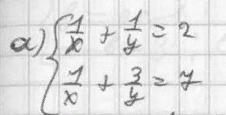 a) { 1/x + 1/y = 2
1/x + 3/y = 7